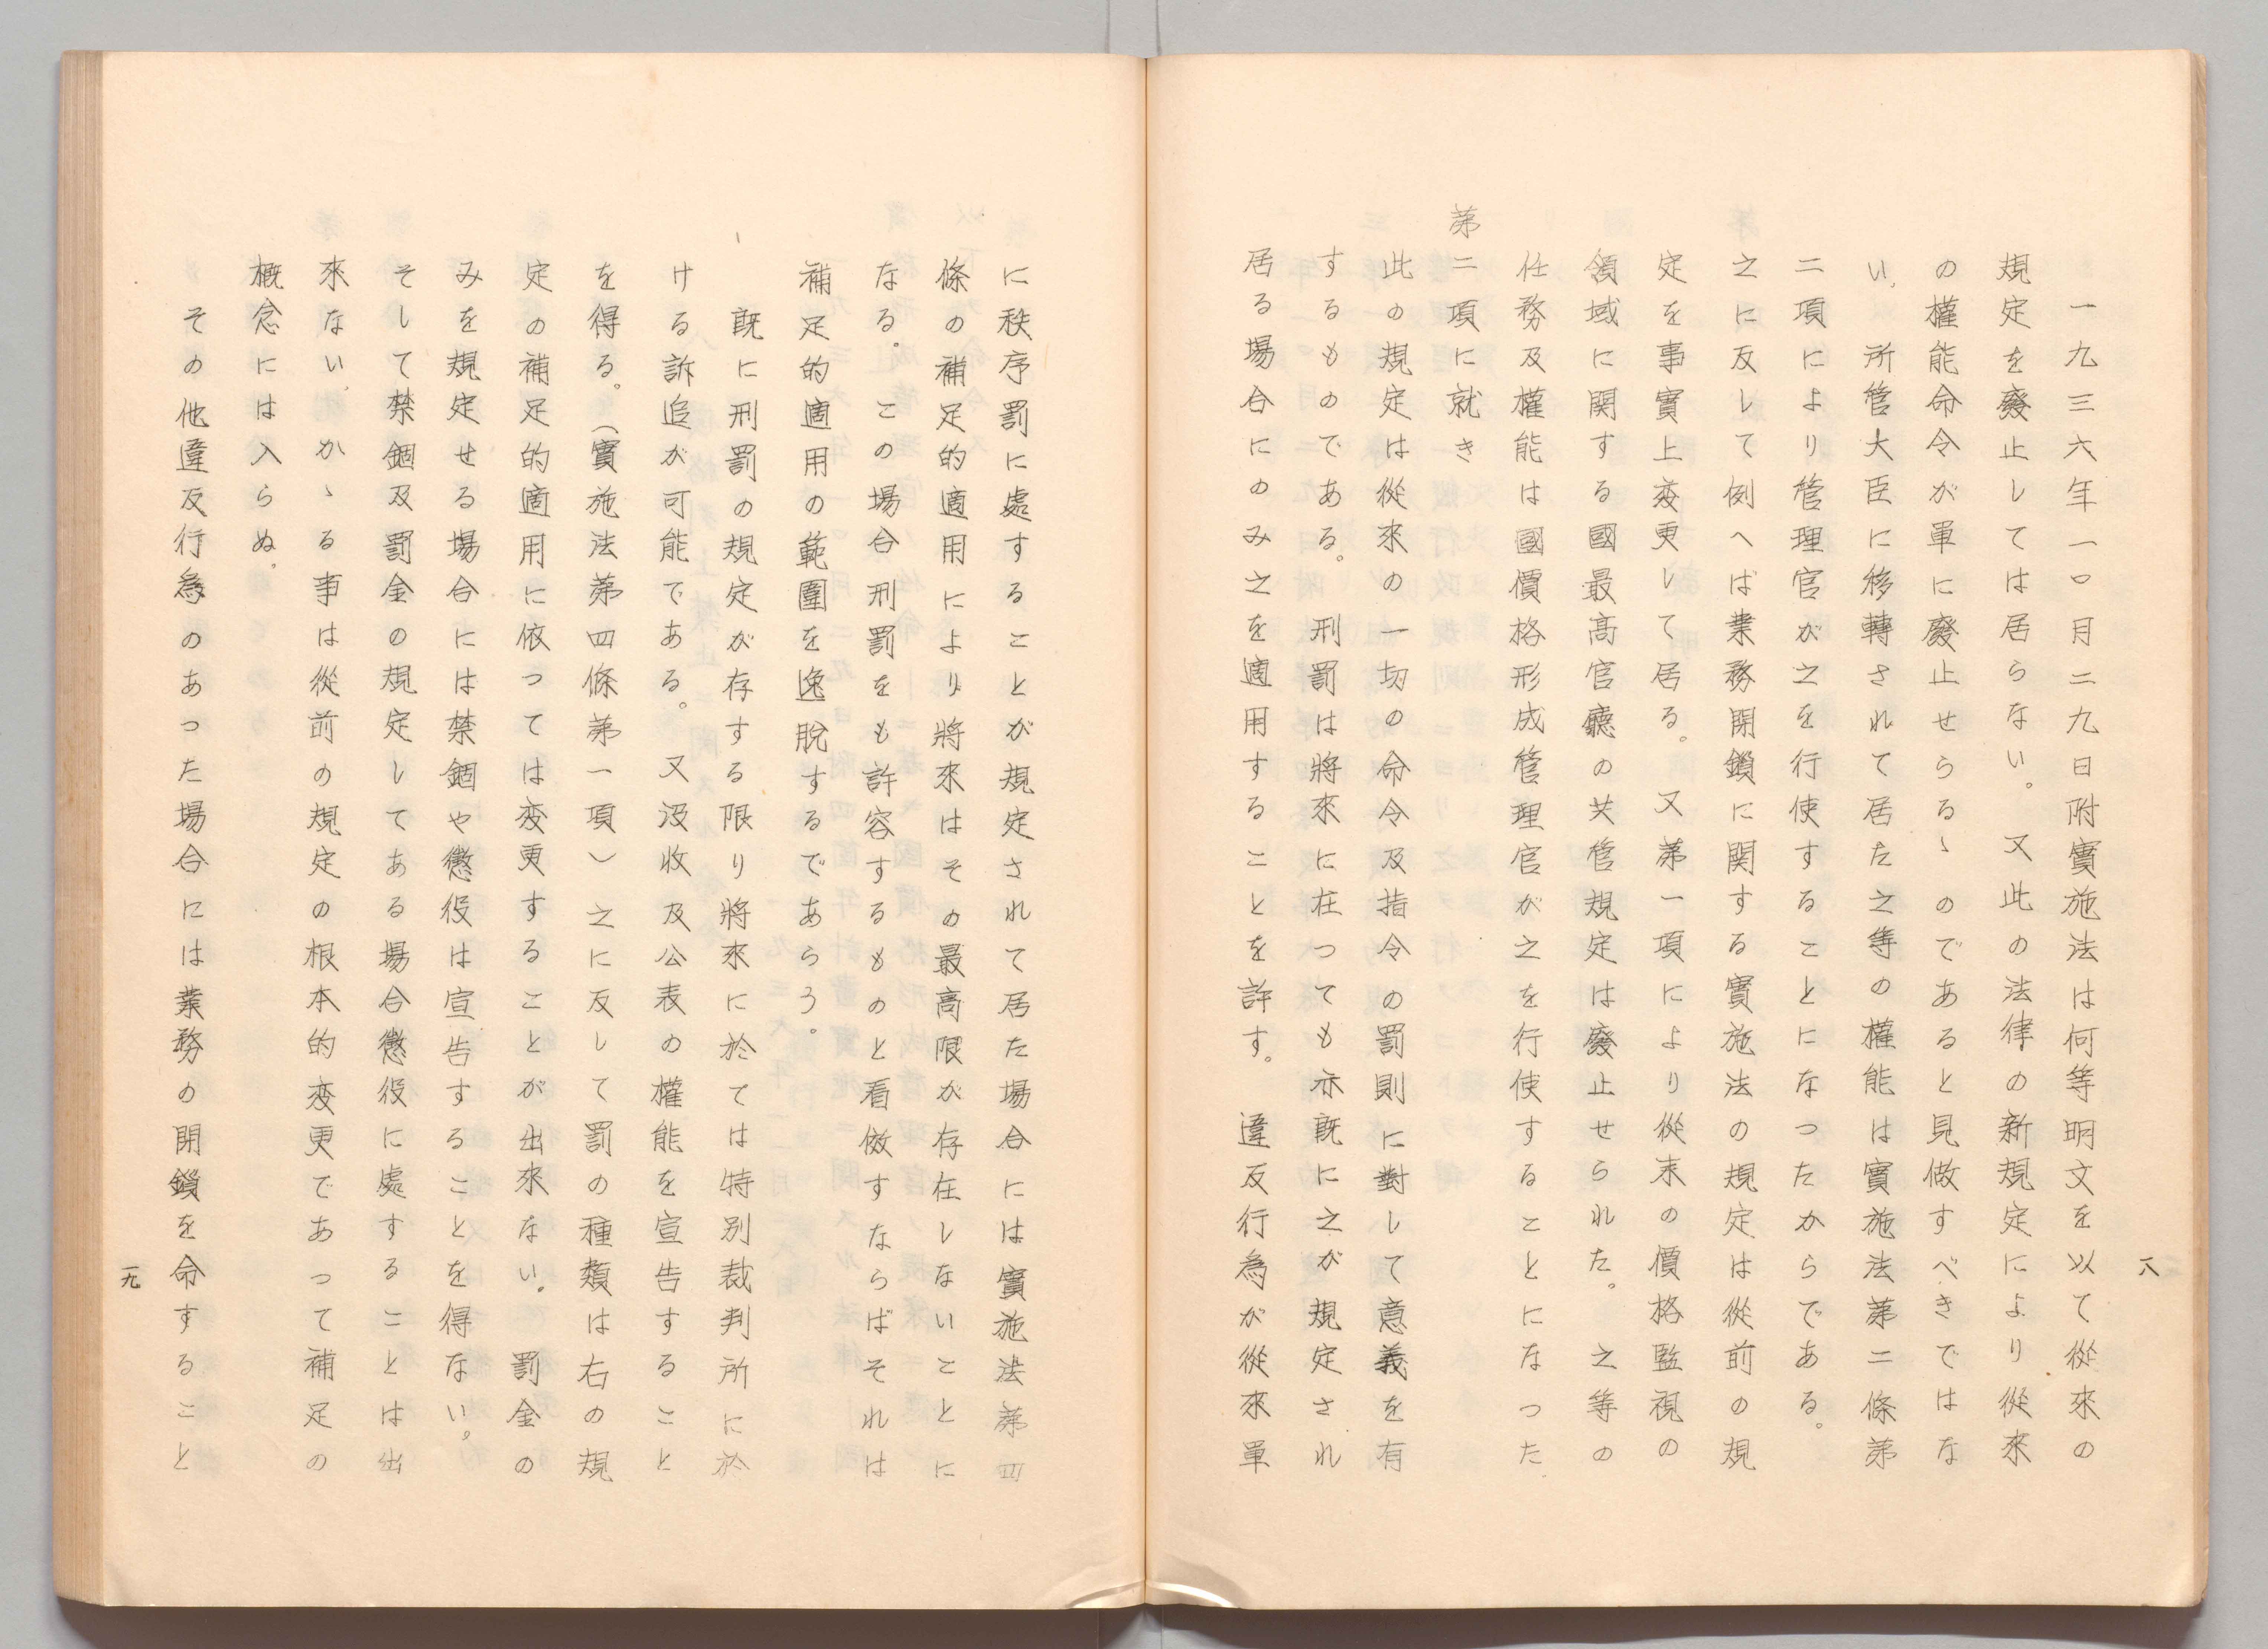 一八
一九三六年一〇月二九日附實施法は何等明文を以て從來の
規定を廢止しては居らない。又此の法律の新規定により從來
の權能命令が單に廢止せらるゝのであると見做すべきではな
い、所管大臣に移轉されて居た之等の權能は實施法第二條第
二項により管理官が之を行使することになつたからである。
之に反して例へば業務閉鎖に関する實施法の規定は從前の規
定を事實上変更して居る。又第一項により從来の價格監視の
領域に関する國最高官廳の共管規定は廢止せられた。之等の
任務及權能は國價格形成管理官が之を行使することになつた
第二項に就き
此の規定は從來の一切の命令及指令の罰則に對して意義を有
するものである。刑罰は將來に在つても亦既に之が規定され
居る場合にのみ之を適用することを許す。違反行為が從來單
に秩序罰に處することが規定されて居た場合には實施法第四
條の補足的適用により將來はその最高限が存在しないことに
なる。この場合刑罰をも許容するものと看做すならばそれは
補足的適用の範圍を逸脫するであらう。
既に刑罰の規定が存する限り將來に於ては特別裁判所に於
ける訴追が可能である。又沒收及公表の權能を宣告すること
を得る。（實施法第四條第一項）之に反して罰の種類は右の規
定の補足的適用に依つては変更することが出來ない。罰金の
みを規定せる場合には禁錮や懲役は宣告することを得ない。
そして禁錮及罰金の規定してある場合懲役に處することは出
來ない、かゝる事は從前の規定の根本的変更であつて補足の
概念には入らぬ。
その他違反行為のあつた場合には業務の閉鎖を命すること
一九